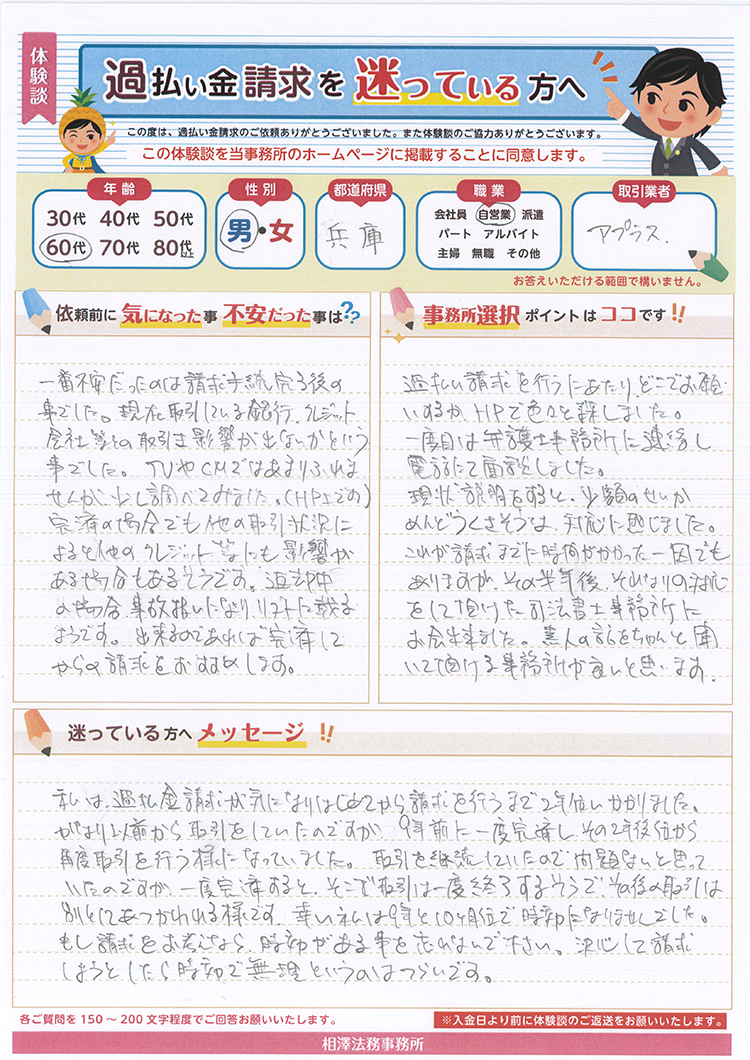 体験談
過払い金請求を迷っている方へ
この度は、過払い金請求のご依頼ありがとうございました。また体験談のご協力ありがとうございます。
この体験談を当事務所のホームページに掲載することに同意します。
年齢 性別 都道府県 職業 取引業者
30代 40代 50代
60代 70代 80代以上
男・女
兵庫
会社員 自営業 派遣
パート アルバイト
主婦 無職 その他
アプラス.
お答えいただける範囲で構いません。
依頼前に気になった事 不安だった事は??
一番不安だったのは請求手続完了後の
事でした。現在取引している銀行、クレジット
会社等との取引に影響が出ないかという
事でした。TVやCMではあまりふれま
せんが、少し調べてみました。(HP上での)
完済の場合でも他の取引状況に
よると他のクレジット等にも影響が
ある場合もあるそうです。返却中
の場合、事故扱いになりリストに載る
ようです。出来るのであれば完済して
からの請求をおすすめします。
事務所選択ポイントはココです!!
過払い請求を行うにあたり、どこでお願
いするか、HPで色々と探しました。
一度目は弁護士事務所に連絡し
電話にて面談しました。
現状説明をすると、少額のせいか
めんどうくさそうな、対応に感じました。
これが請求までに時間がかかった一因でも
ありますが、その半年後、それなりの対応
をして頂けた司法書士事務所に
お会い出来ました。素人の話をちゃんと聞
いて頂ける事務所が良いと思います。
迷っている方へメッセージ!!
私は、過払金請求が気になりはじめてから請求を行うまで2年位かかりました。
かなり以前から取引をしていたのですが、9年前に一度完済し、その2年後位から
再度取引を行う様になっていました。取引を継続していたので問題ないと思って
いたのですが、一度完済すると、そこで取引は一度終了するそうで、その後の取引は
別としてあつかわれる様です。幸い私は9年と10ヶ月位で時効になりませんでした。
もし請求をお考えなら、時効がある事を忘れないで下さい。決心して請求
しようとしたら時効で無理というのはつらいです。
各ご質問を150～200文字程度でご回答お願いいたします。
※入金日より前に体験談のご返送をお願いいたします。
相澤法務事務所